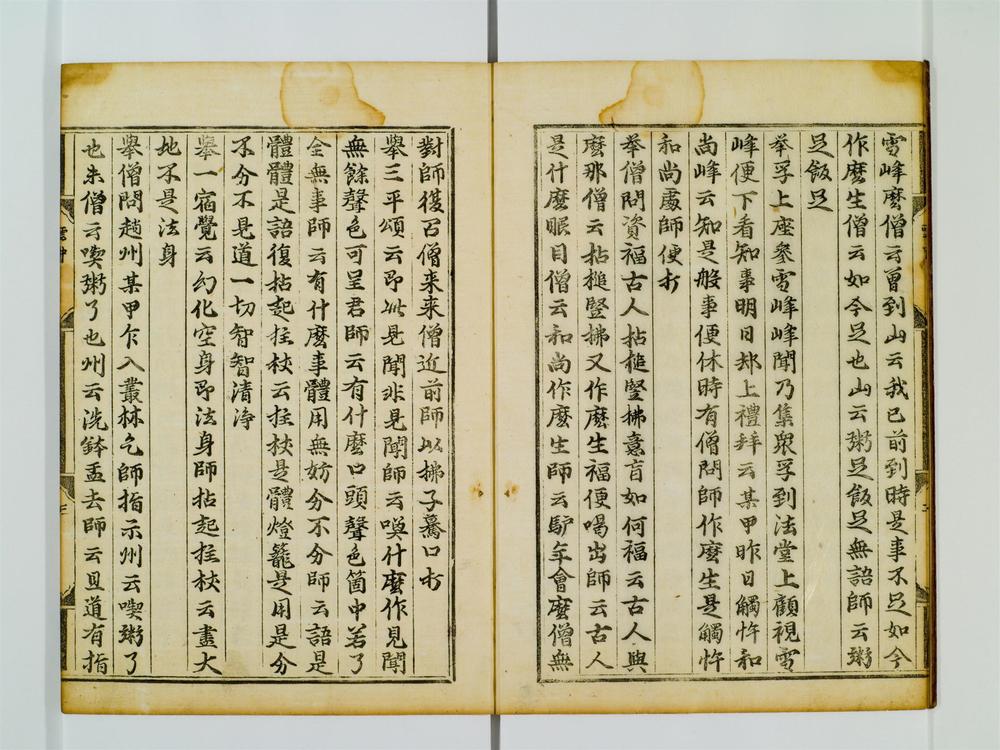 雪峰麽僧云曾到山云我已前到時是事不足如今
作麽生僧云如今足也山云粥足飯足無語師云粥
足飯足
举孚上座叅雪峰峰聞乃集衆孚到法堂上顧視雪
峰便下看知事明日却上禮拜云某甲昨日觸忤和
尚峰云知是般事便休時有僧問師作麽生是觸忤
和尚處師便打
举僧問資福古人拈槌竪拂意旨如何福云古人與
麽那僧云拈槌竪拂又作麽生福便喝出師云古人
是什麽眼目僧云和尚作麽生師云驴年會麽僧無
對師復召僧来来僧近前師以拂子驀口打
舉三平頌云即此見聞非見聞師云喚什麽作見聞
無餘聲色可呈君師云有什麽口頭聲色箇中若了
全無事師云有什麽事體用無妨分不分師云語是
體體是語復拈起拄杖云拄杖是體燈籠是用是分
不分不見道一切智智清净
舉一宿覺云幻化空身即法身師拈起拄杖云盡大
地不是法身
舉僧問趙州某甲乍入叢林乞師指示州云喫粥了
也未僧云喫粥了也州云洗鉢盂去師云且道有指